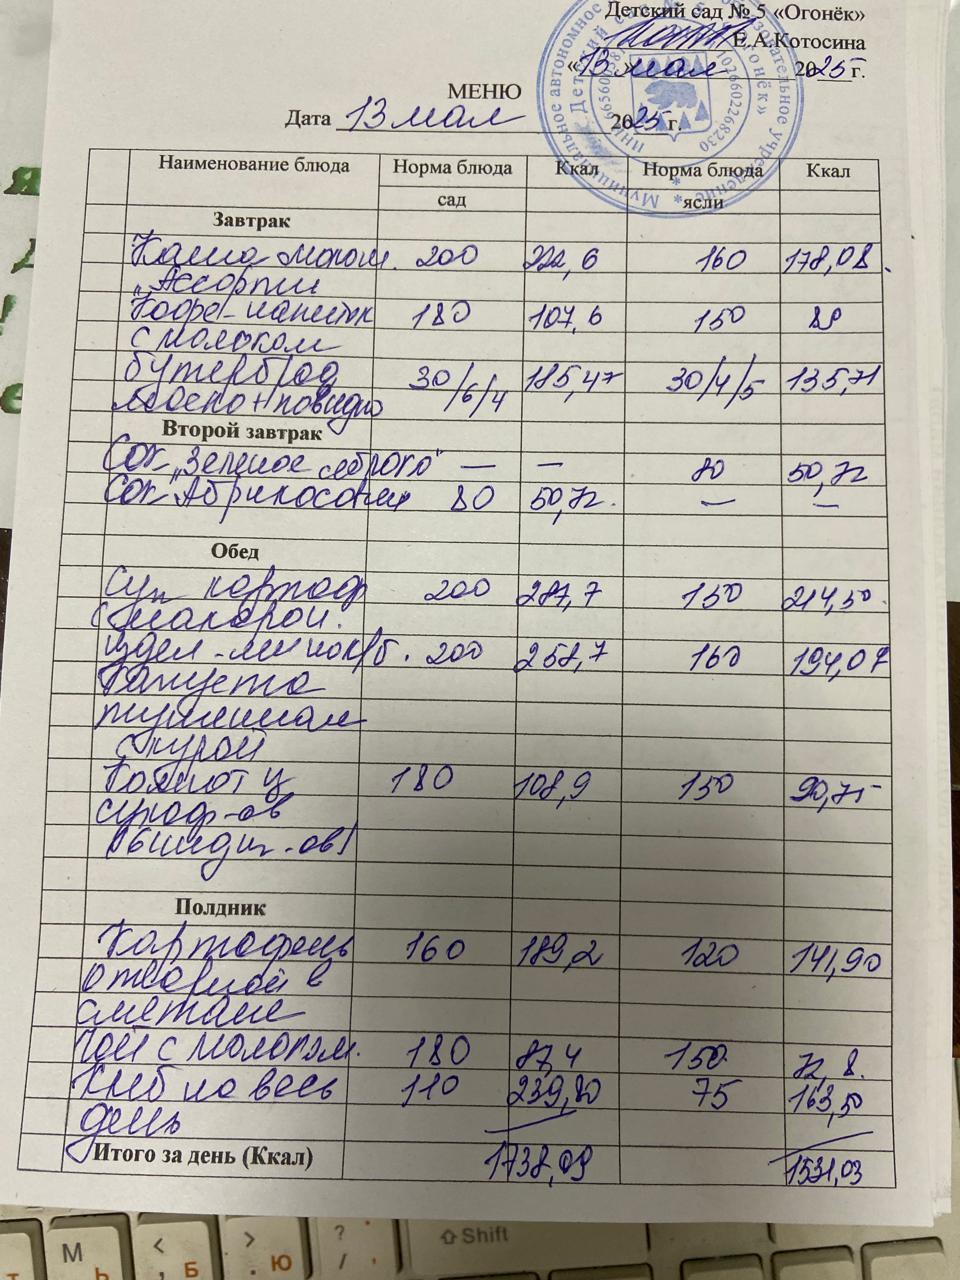 Детский сад № 5 «Огонёк»
Е.А.Котосина
«13» мая 2025 г.
МЕНЮ
Дата 13 мая 2025 г.
Наименование блюда Норма блюда Ккал Норма блюда Ккал
сад ясли
Завтрак
Каша молоч. 200 222,6 160 178,08.
„Ассорти
Кофе-напиток 180 107,6 150 89
с молоком
бутерброд 30/6/4 185,47 30/4/5 135,71
масло+повидло
Второй завтрак
Сок „Зеленое яблоко" — — 80 50,72
Сок "Абрикосовый 80 50,72. — —
Обед
Суп картоф 200 287,7 150 214,50.
с макарон.
издел. - на мок/б. 200 258,7 160 194,07
Капуста
тушенная
с курой
Компот из 180 108,9 150 90,75
сухофр-ов
(витамин.-ов)
Полдник
Картофель 160 189,2 120 141,90
отварной в
сметане
Чай с молоком. 180 87,4 150 72,8.
Хлеб на весь 110 239,80 75 163,50
день
Итого за день (Ккал) 1738,09 1531,03
Муниципальное автономное дошкольное образовательное учреждение
Shift
М Ь
< , Б
> . Ю
? / ,